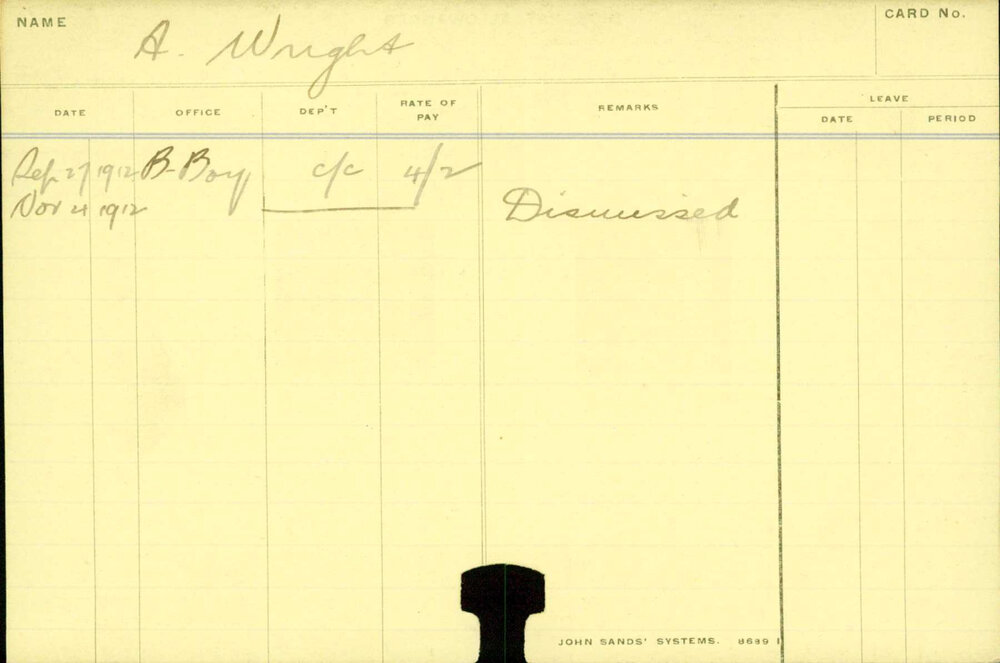 NAME A. Wright CARD No.
DATE OFFICE DEP'T RATE OF PAY REMARKS LEAVE
DATE PERIOD
Sep 27 1912 B-Boy c/c 4/2
Nov 21 1912 Dismissed
JOHN SANDS' SYSTEMS. 8689